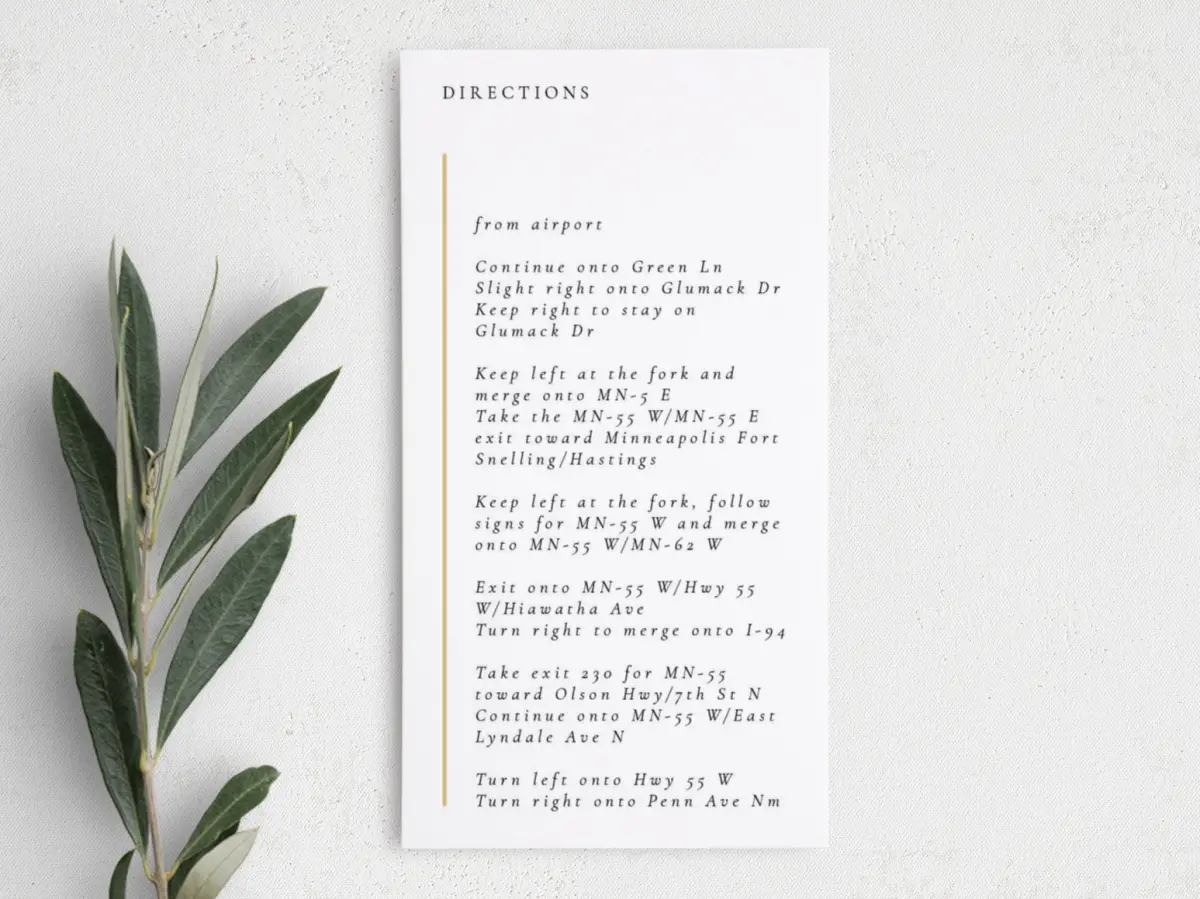 DIRECTIONS
from airport
Continue onto Green Ln
Slight right onto Glumack Dr
Keep right to stay on
Glumack Dr
Keep left at the fork and
merge onto MN-5 E
Take the MN-55 W/MN-55 E
exit toward Minneapolis Fort
Snelling/Hastings
Keep left at the fork, follow
signs for MN-55 W and merge
onto MN-55 W/MN-62 W
Exit onto MN-55 W/Hwy 55
W/Hiawatha Ave
Turn right to merge onto I-94
Take exit 230 for MN-55
toward Olson Hwy/7th St N
Continue onto MN-55 W/East
Lyndale Ave N
Turn left onto Hwy 55 W
Turn right onto Penn Ave Nm